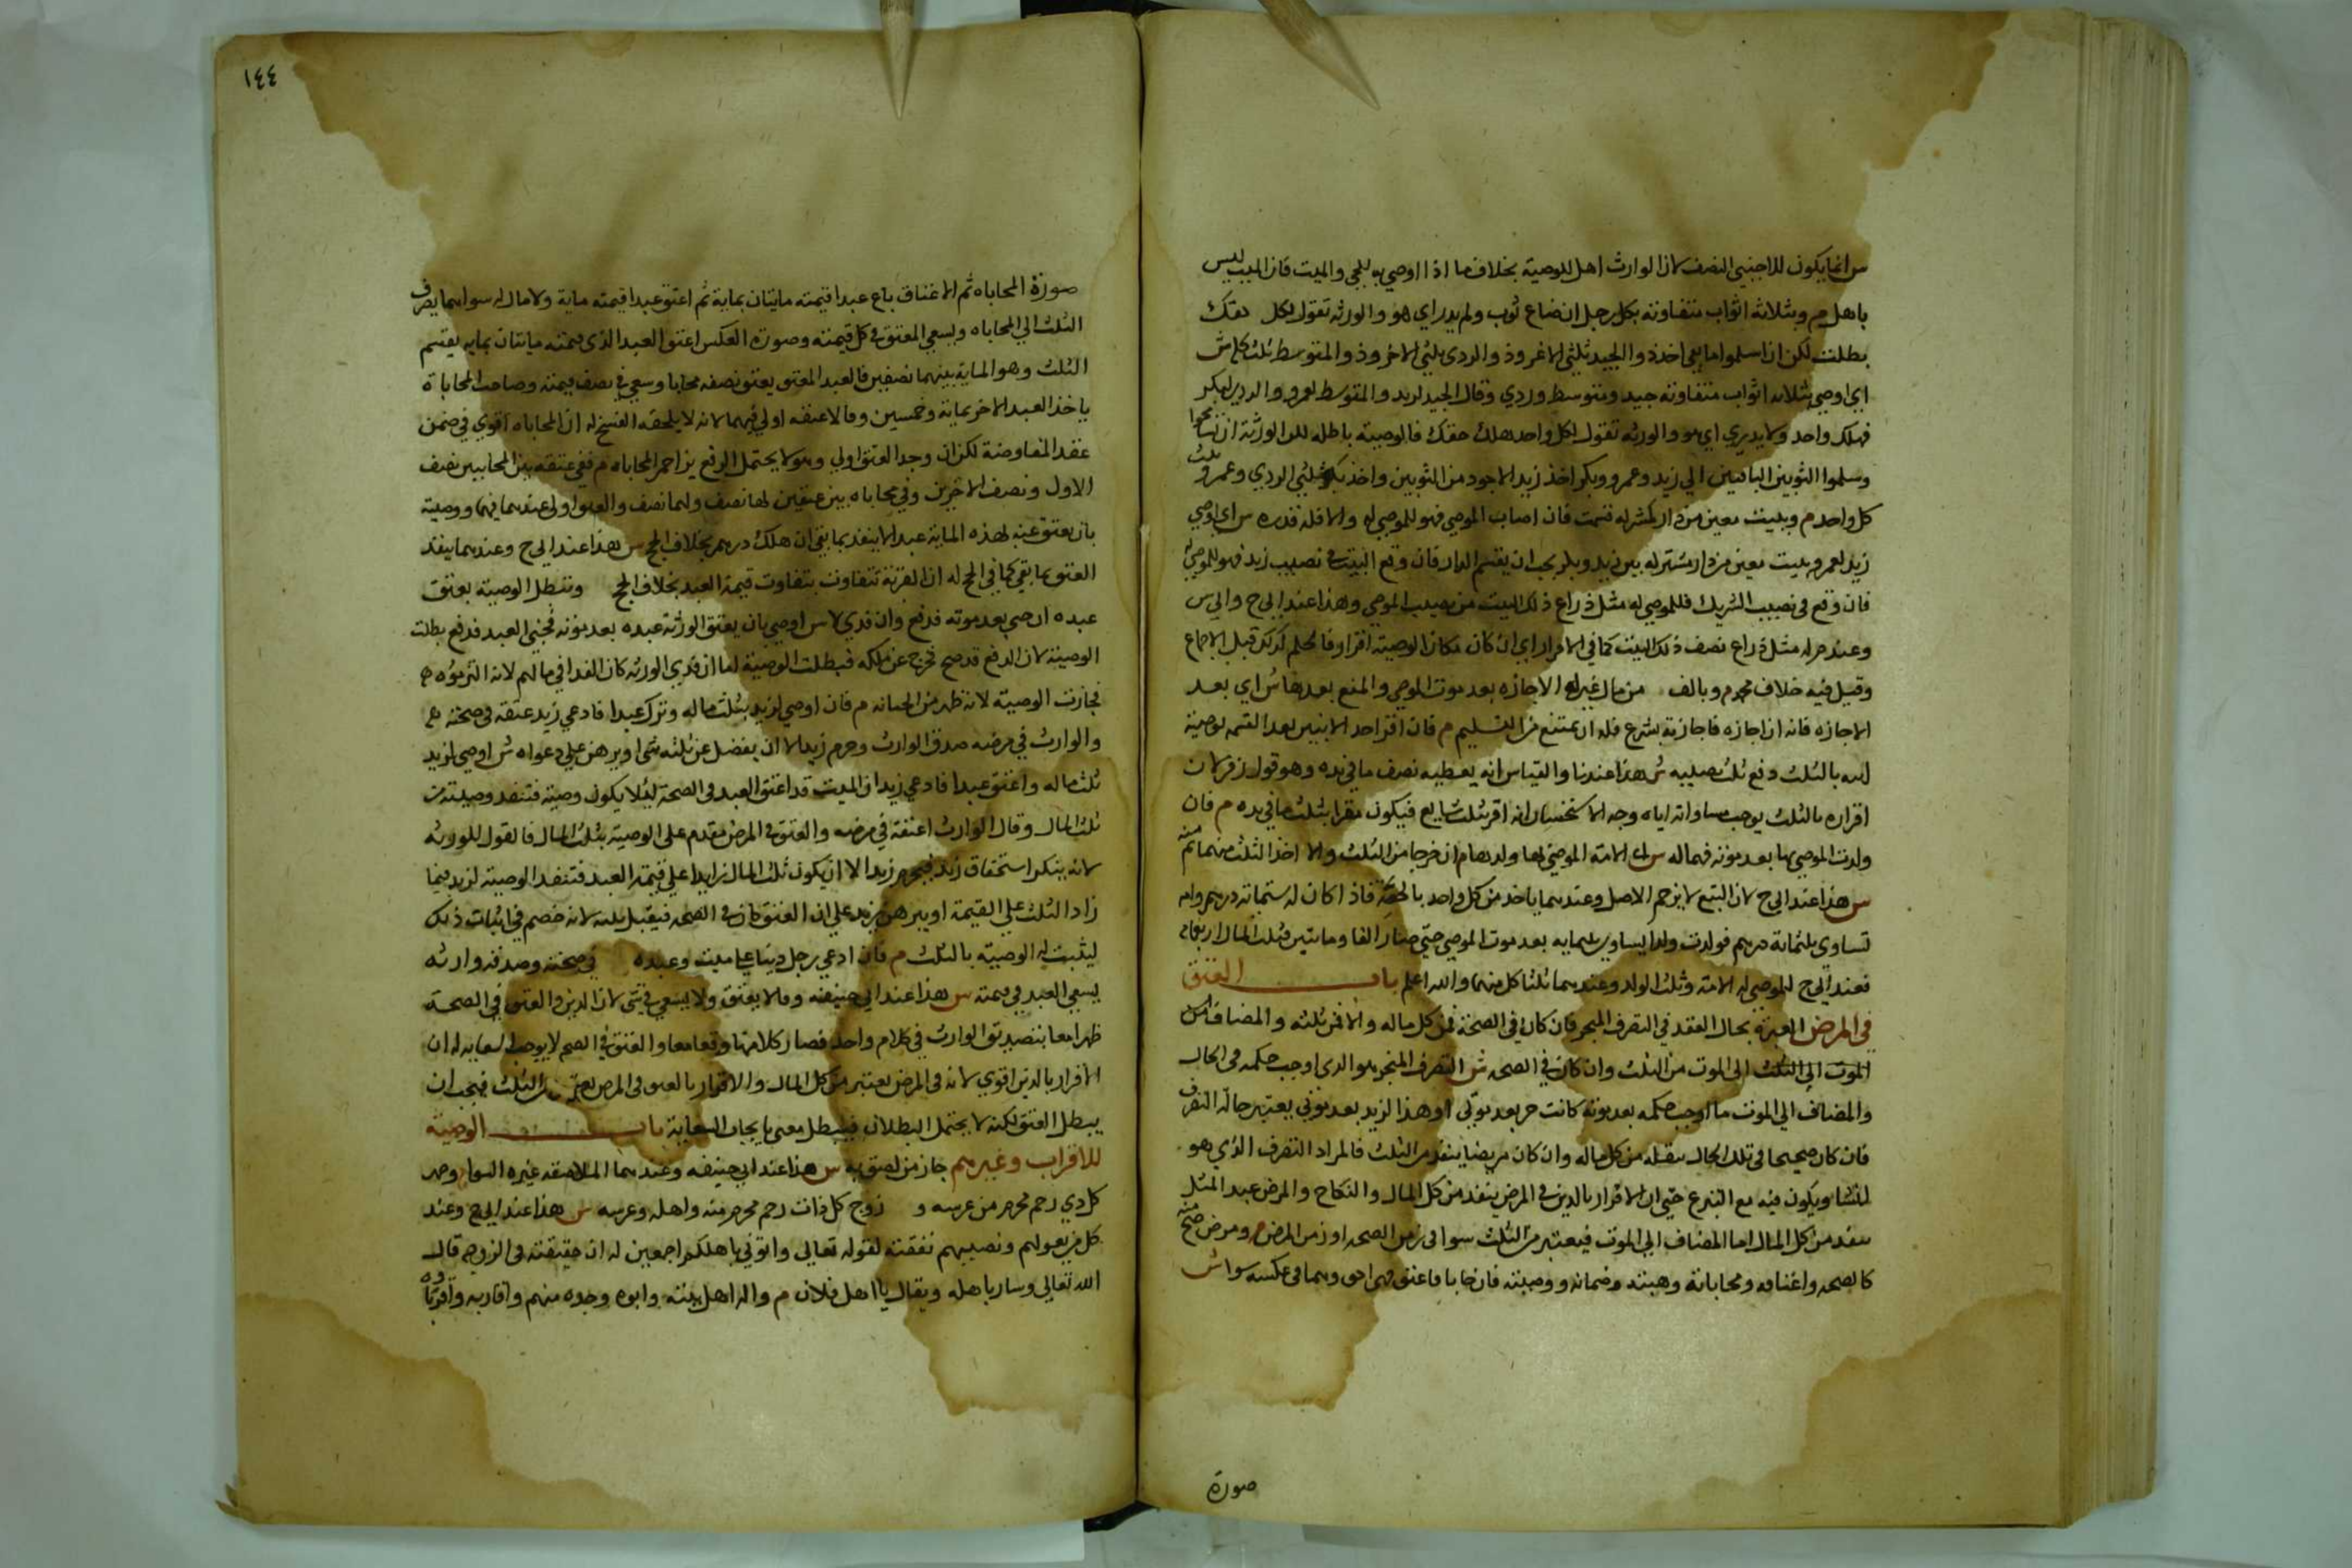 س انما يكون للاجنبي النصف لان الوارث اهل للوصية بخلاف ما اذا اوصي به للحي والميت فان الميت ليس
باهل م وبثلاثة اثواب متفاوتة بكل رجل ان ضاع ثوب ولم يدر اي هو والورثه تقول لكل حقك
بطلت لكن ان اسلموا ما بقي اخذ ذو الجيد ثلثي الاغر وذو الردي ثلثي الاخر وذو المتوسط ثلث كل ش
اي اوصي بثلاثه اثواب متفاوتة جيد ومتوسط وردي وقال الجيد لزيد والمتوسط لعمرو والردي لبكر
فهلك واحد ولا يدري اي هو والورثه تقول لكل واحد هلك حقك فالوصية باطله للورثة ان تسامحوا
وسلموا الثوبين الباقيين الي زيد وعمرو وبكر اخذ زيد الاجود من الثوبين واخذ بكر ثلثي الردي وعمرو ثلث
كل واحد م وببيت معين من دار مشتركه قسمت فان اصاب الموصي فهو للموصي له والا فله قدره س اي اوصي
زيد لعمرو ببيت معين من دار مشتركه بين زيد وبكر يجب ان يقسم الدار فان وقع البيت في نصيب زيد فهو للموصي له
فان وقع في نصيب الشريك فللموصي له مثل ذراع ذلك البيت من نصيب الموصي وهذا عند ابي ح وابي س
وعند م له مثل ذراع نصف ذلك البيت كما في الاقرار اي ان كان مكان الوصية اقرار فالحكم كذلك قيل بالاجماع
وقيل فيه خلاف محمد م وبالف من مال غيره له الاجازه بعد موت الموصي والمنع بعدها ش اي بعد
الاجازه فانه ان اجازه فاجازته تبرع فله ان يمتنع من التسليم م فان اقر احد الابنين بعد القسمه بوصية
ابيه بالثلث دفع ثلث نصيبه ش هذا عندنا والقياس انه يعطيه نصف ما في يده وهو قول زفر لان
اقراره بالثلث يوجب مساواته اياه وجه الاستحسان انه اقر بثلث شايع فيكون مقرا بثلث ما في يده م فان
ولدت الموصي بها بعد موته فهما له س اي الامة الموصي بها ولدها م ان خرجا من الثلث والا اخذ الثلث منها ثم منه
س هذا عند ابي ح لان التبع لا يزاحم الاصل وعندهما ياخذ من كل واحد بالحصة فاذا كان له ستمائة درهم وامه
تساوي ثلثماية درهم فولدت ولدا يساوي ثلثمايه بعد موت الموصي حتي صار الفا ومايتين فثلث المال اربعمايه
فعند ابي ح للموصي له الامة وثلث الولد وعندهما ثلثا كل منهما والله اعلم باب العتق
في المرض العبرة بحال العقد في التصرف المنجر فان كان في الصحة فمن كل ماله والا فمن ثلثه والمضاف الي
الموت الي الثلث الي الموت من الثلث وان كان في الصحه ش التصرف المنجر هو الذي اوجب حكمه في الحال
والمضاف الي الموت ما اوجب حكمه بعد موته كانت حر بعد موتي او هذا لزيد بعد موتي يعتبر حالة التصرف
فان كان صحيحا في تلك الحال ينفذ من كل ماله وان كان مريضا ينفذ من الثلث فالمراد التصرف الذي هو
انشا ويكون فيه مع التبرع حتي ان الاقرار بالدين في المرض ينفذ من كل المال والنكاح والمرض عبد المثل
ينفذ من كل المال اما المضاف الي الموت فيعتبر من الثلث سوا في زمن الصحه او زمن المرض م ومرض صح منه
كالصحه واعتاقه ومحاباتة وهبته وضمانه ووصيته فان حابا فاعتق فهي احق وهما في عكسه سوا ش
صورة
١٤٤
صورة المحاباه ثم الاعتاق باع عبدا قيمته مايتان بماية ثم اعتق عبدا قيمته ماية ولا مال له سواهما يصرف
الثلث الي المحاباه ويسعي المعتق في كل قيمته وصورة العكس اعتق العبد الذي قيمته مايتان بمايه يقسم
الثلث وهو الماية بينهما نصفين فالعبد المعتق يعتق نصفه مجانا وسعي في نصف قيمته وصاحب المحاباة
ياخذ العبد الاخر بماية وخمسين وقالا عتقه اولي فيهما لانه لا يلحقه الفسخ له ان المحاباه اقوي في ضمن
عقد المعاوضة لكن ان وجد العتق اولي وهو لا يحتمل الرفع يزاحم المحاباه م ففي عتقه بين المحابيين نصف
الاول ونصف الاخرين وفي محاباه بين عتقين لها نصف ولهما نصف والعتق اولي عندهما فيهما ووصيته
بان يعتق عنه لهذه الماية عبد لا ينفذ بما بقي ان هلك درهم بخلاف الحج س هذا عند ابي ح وعندهما ينفذ
العتق بما بقي كما في الحج له ان القربة تتفاوت بتفاوت قيمة العبد بخلاف الحج وتبطل الوصية بعتق
عبده ان جني بعد موته فدفع وان فدي لا س اوصي بان يعتق الورثة عبده بعد موته فجني العبد فدفع بطلت
الوصية لان الدفع قد صح فخرج عن ملكه فبطلت الوصية اما ان فدي الورثه كان الفدا في مالهم لانه التزموه
فجازت الوصية لانه طهر من الجناية م فان اوصي لزيد بثلث ماله وترك عبدا فادعي زيد عتقه في صحته
والوارث في مرضه صدق الوارث وحرم زيد الا ان يفضل عن ثلثه شي او يبرهن علي دعواه ش اوصي لزيد
ثلث ماله واعتق عبدا فادعي زيد ان الميت قد اعتق العبد في الصحة لئلا يكون وصية فتنفذ وصيته من
ثلث المال وقال الوارث اعتقه في مرضه والعتق في المرض مقدم علي الوصية بثلث المال فالقول للورثه
لانه ينكر استحقاق زيد فيحرم زيد الا ان يكون ثلث المال زايدا علي قيمة العبد فتنفذ الوصية لزيد فيما
زاد الثلث علي القيمة او يبرهن زيد علي ان العتق كان في الصحه فيقبل بينته لانه خصم في اثبات ذلك
ليثبت له الوصية بالثلث م فان ادعي رجل دينا علي ميت وعبده في صحته وصدقه وارثه
يسعي العبد في قيمته س هذا عند ابي حنيفه وقالا يعتق ولا يسعي في شي لان الدين والعتق في الصحة
ظهرا معا بتصديق الوارث في كلام واحد فصار كلامهما وقعا معا والعتق في الصحه لا يوجب السعايه له ان
الاقرار بالدين اقوي لانه في المرض يعتبر من كل المال والاقرار بالعتق في المرض يعتبر من الثلث فيجب ان
يبطل العتق لكنه لا يحتمل البطلان فيبطل معني بايجاب السعاية باب الوصية
للاقراب وغيرهم جاره من لصق به س هذا عند ابي حنيفه وعندهما الملاصقه غيره السوا وصهر
كل ذي رحم محرم من عرسه و زوج كل ذات رحم محرم منه واهله وعرسه س هذا عند ابي ح وعند
كل من يعولهم ونصيبهم نفقته لقوله تعالي واتوني باهلكم اجمعين له ان حقيقته في الزوجه قال
الله تعالي وسار باهله ويقال يا اهل فلان م واله اهل بيته وابوه وجده منهم واقاربه واقرباوه